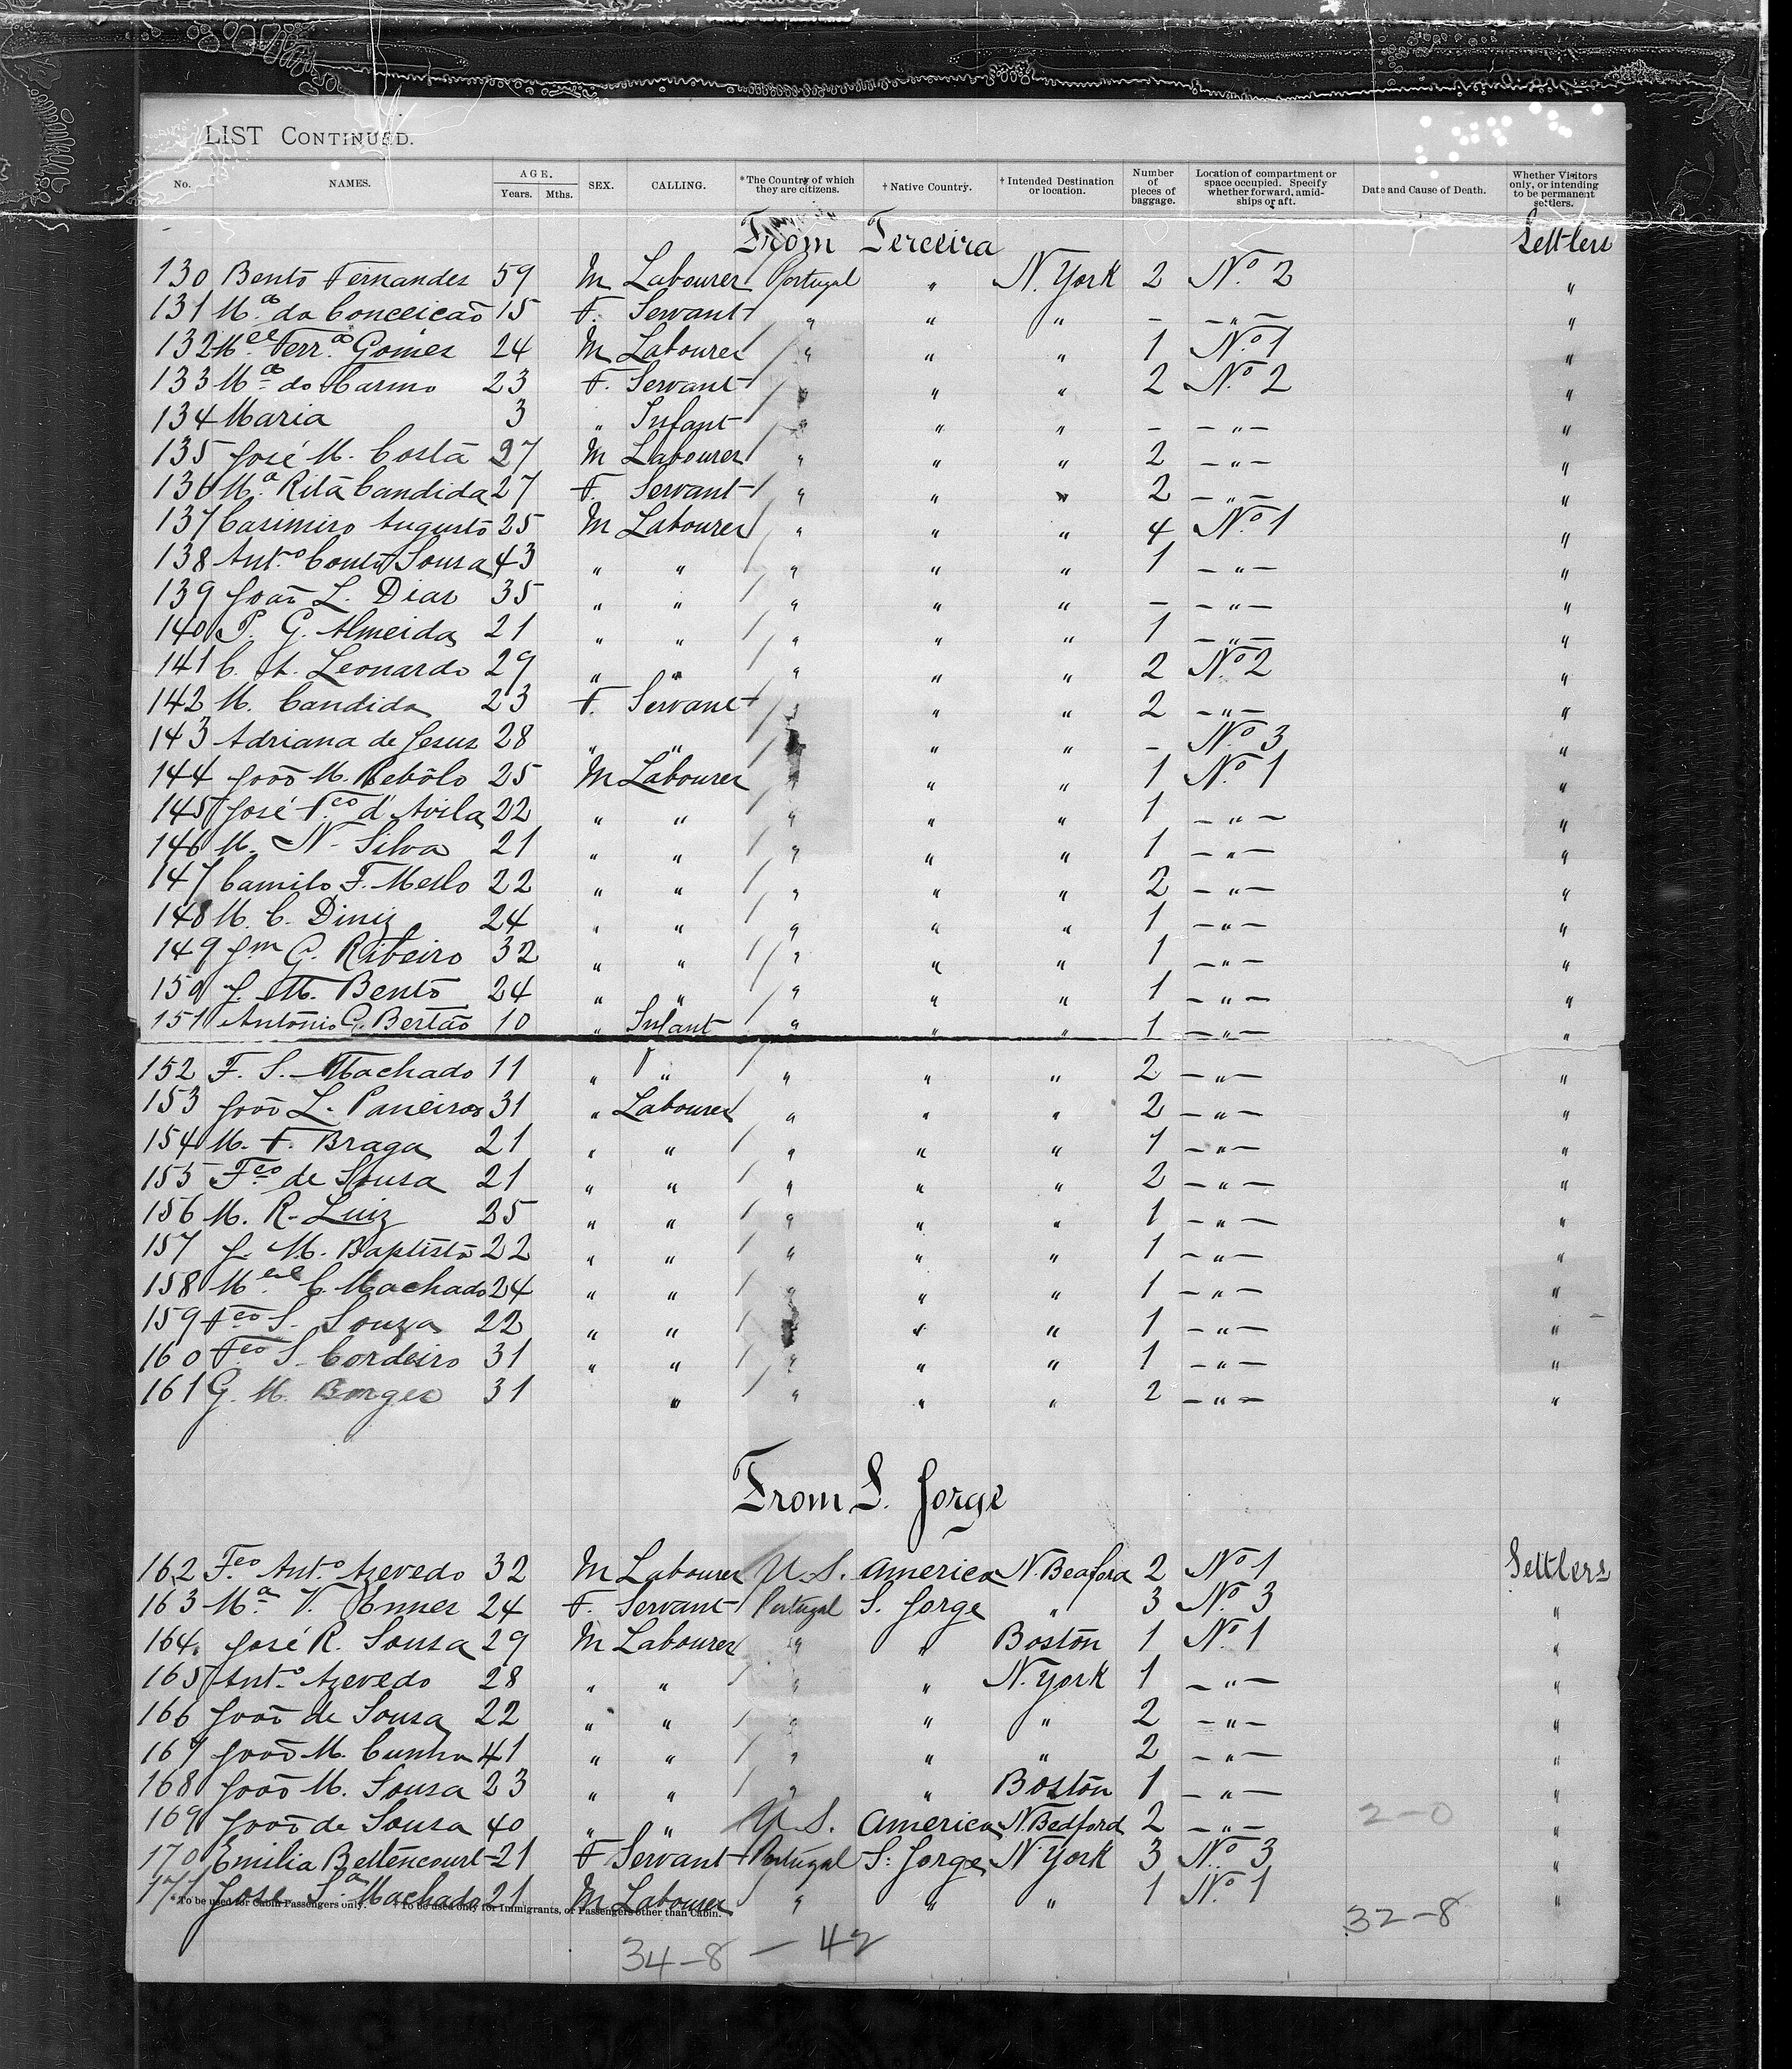 LIST CONTINUED.
No. NAMES. AGE. Years. Mths. SEX. CALLING. *The Country of which they are citizens. † Native Country. † Intended Destination or location. Number of pieces of baggage. Location of compartment or space occupied. Specify whether forward, amidships or aft. Date and Cause of Death. Whether Visitors only, or intending to be permanent settlers.
From Terceira Settlers
130 Bento Fernandes 59 M Labourer Portugal " N. York 2 Nº 2 "
131 Mª da Conceicão 15 F. Servant " " " - -"- "
132 Mel Ferrª Gomes 24 M Labourer " " " 1 Nº 1 "
133 Mª do Carmo 23 F. Servant " " " 2 Nº 2 "
134 Maria 3 " Infant " " " - -"- "
135 José M. Costa 27 M Labourer " " " 2 -"- "
136 Mª Rita Candida 27 F. Servant " " " 2 -"- "
137 Casimiro Augusto 25 M Labourer " " " 4 Nº 1 "
138 Antº Couto Sousa 43 " " " " " 1 -"- "
139 João L. Dias 35 " " " " " - -"- "
140 P. G. Almeida 21 " " " " " 1 -"- "
141 C. A. Leonardo 29 " " " " " 2 Nº 2 "
142 M. Candida 23 F. Servant " " " 2 -"- "
143 Adriana de Jesus 28 " " " " " - Nº 3 "
144 João M. Rebôlo 25 M Labourer " " " 1 Nº 1 "
145 José Fco d'Avila 22 " " " " " 1 -"- "
146 M. N. Silva 21 " " " " " 1 -"- "
147 Camilo F. Mello 22 " " " " " 2 -"- "
148 M. C. Diniz 24 " " " " " 1 -"- "
149 Jm G. Ribeiro 32 " " " " " 1 -"- "
150 J. M. Bento 24 " " " " " 1 -"- "
151 António G. Bertão 10 " Infant " " " 1 -"- "
152 F. S. Machado 11 " " " " " 2 -"- "
153 João L. Paneiros 31 " Labourer " " " 2 -"- "
154 M. F. Braga 21 " " " " " 1 -"- "
155 Fco de Sousa 21 " " " " " 2 -"- "
156 M. R. Luiz 25 " " " " " 1 -"- "
157 J. M. Baptista 22 " " " " " 1 -"- "
158 Mel C. Machado 24 " " " " " 1 -"- "
159 Fco S. Souza 22 " " " " " 1 -"- "
160 Fco S. Cordeiro 31 " " " " " 1 -"- "
161 G. M. Borges 31 " " " " 2 -"- "
From S. Jorge
162 Fco Antº Azevedo 32 M Labourer U.S. America N. Beaford 2 Nº 1 Settlers
163 Mª V. 24 F. Servant Portugal S. Jorge " 3 Nº 3 "
164 José R. Sousa 29 M Labourer " " Boston 1 Nº 1 "
165 Antº Azevedo 28 " " " " N. York 1 -"- "
166 João de Sousa 22 " " " " " 2 -"- "
167 João M. Cunha 41 " " " " " 2 -"- "
168 João M. Sousa 23 " " " " Boston 1 -"- "
169 João de Sousa 40 " " U.S. America N. Bedford 2 -"- 2-0 "
170 Emilia Bettencourt 21 F Servant Portugal S. Jorge N. York 3 Nº 3 "
171 José Sª Machado 21 M Labourer " " " 1 Nº 1 "
* To be used for Cabin Passengers only. † To be used only for Immigrants, or Passengers other than Cabin.
32-8
34-8 - 42